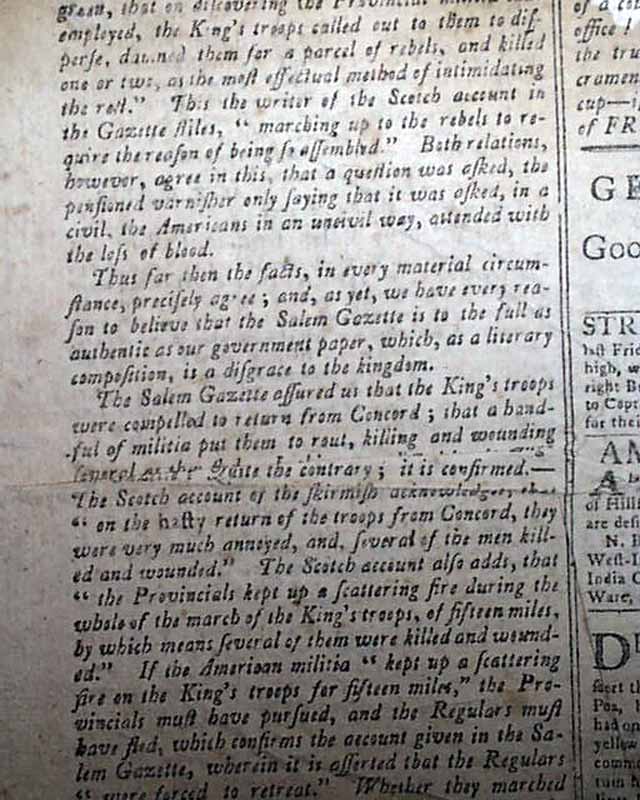 green, that on discovering the Provincial
employed, the King's troops called out to them to dif-
perſe, damned them for a parcel of rebels, and killed
one or two, as the moſt effectual method of intimidating
the reſt." This the writer of the Scotch account in
the Gazette ſtiles, " marching up to the rebels to re-
quire the reaſon of being ſo aſſembled." Both relations,
however, agree in this, that a queſtion was aſked, the
penſioned varniſher only ſaying that it was aſked, in a
civil, the Americans in an uncivil way, attended with
the loſs of blood.
Thus far then the facts, in every material circum-
ſtance, preciſely agree ; and, as yet, we have every rea-
ſon to believe that the Salem Gazette is to the full as
authentic as our government paper, which, as a literary
compoſition, is a diſgrace to the kingdom.
The Salem Gazette aſſured us that the King's troops
were compelled to return from Concord ; that a hand-
ful of militia put them to rout, killing and wounding
the contrary ; it is confirmed.—
The Scotch account of the ſkirmiſh acknowledges, that
" on the haſty return of the troops from Concord, they
were very much annoyed, and, ſeveral of the men kill-
ed and wounded." The Scotch account alſo adds, that
" the Provincials kept up a ſcattering fire during the
whole of the march of the King's troops, of fifteen miles,
by which means ſeveral of them were killed and wound-
ed." If the American militia " kept up a ſcattering
fire on the King's troops for fifteen miles," the Pro-
vincials muſt have purſued, and the Regulars muſt
have fled, which confirms the account given in the Sa-
lem Gazette, wherein it is aſſerted that the Regulars
" were forced to retreat." Whether they marched
office !
the tru
cramen
cup—
of FR
GE
Goo
STR
laſt Frid
high, w
right B
to Capt
for thei
AM
A
of Hill
are deſi
N. B
Weſt-I
India C
Ware,
D
ſuert th
Poa,
had op
yellow
comm
tum N